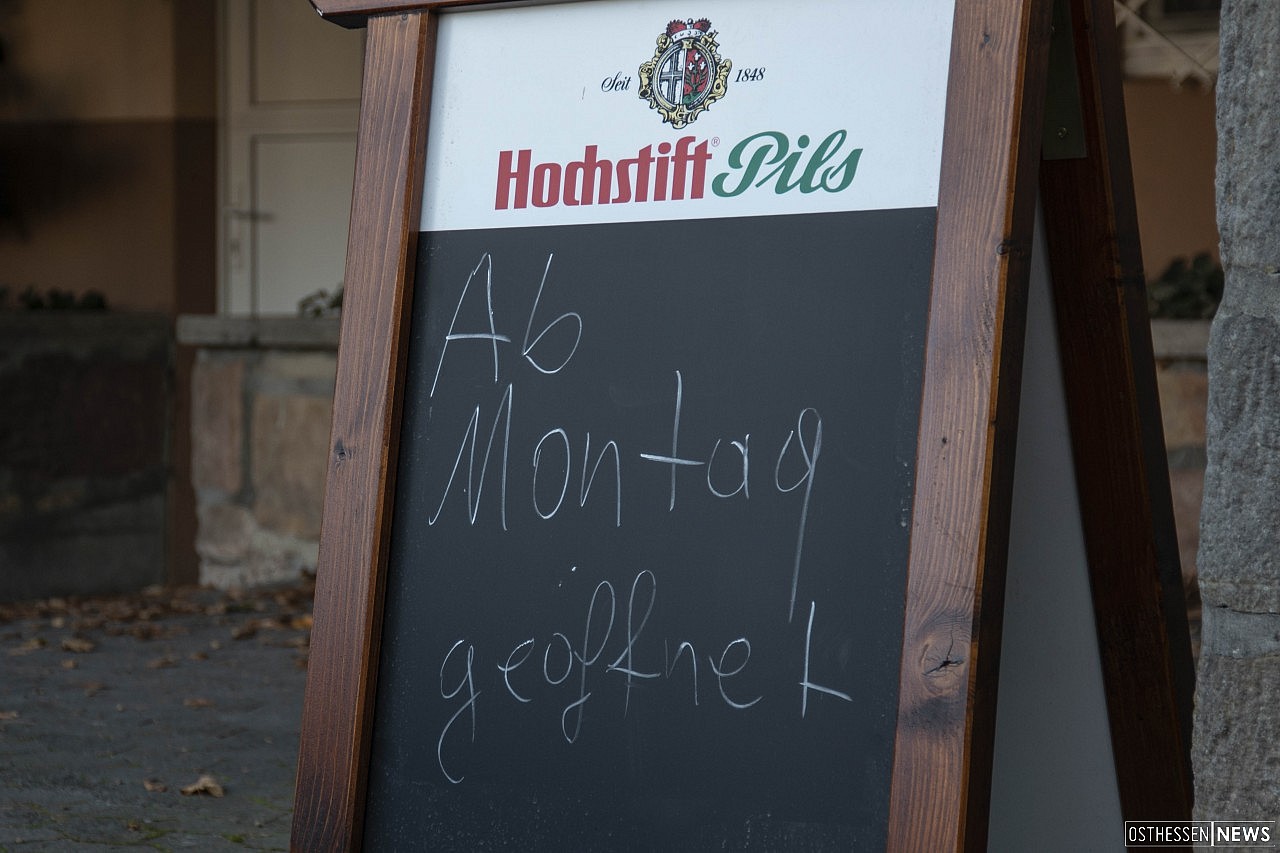 Seit 1848
Hochstift® Pils
Ab
Montag
geöffnet
OSTHESSEN|NEWS